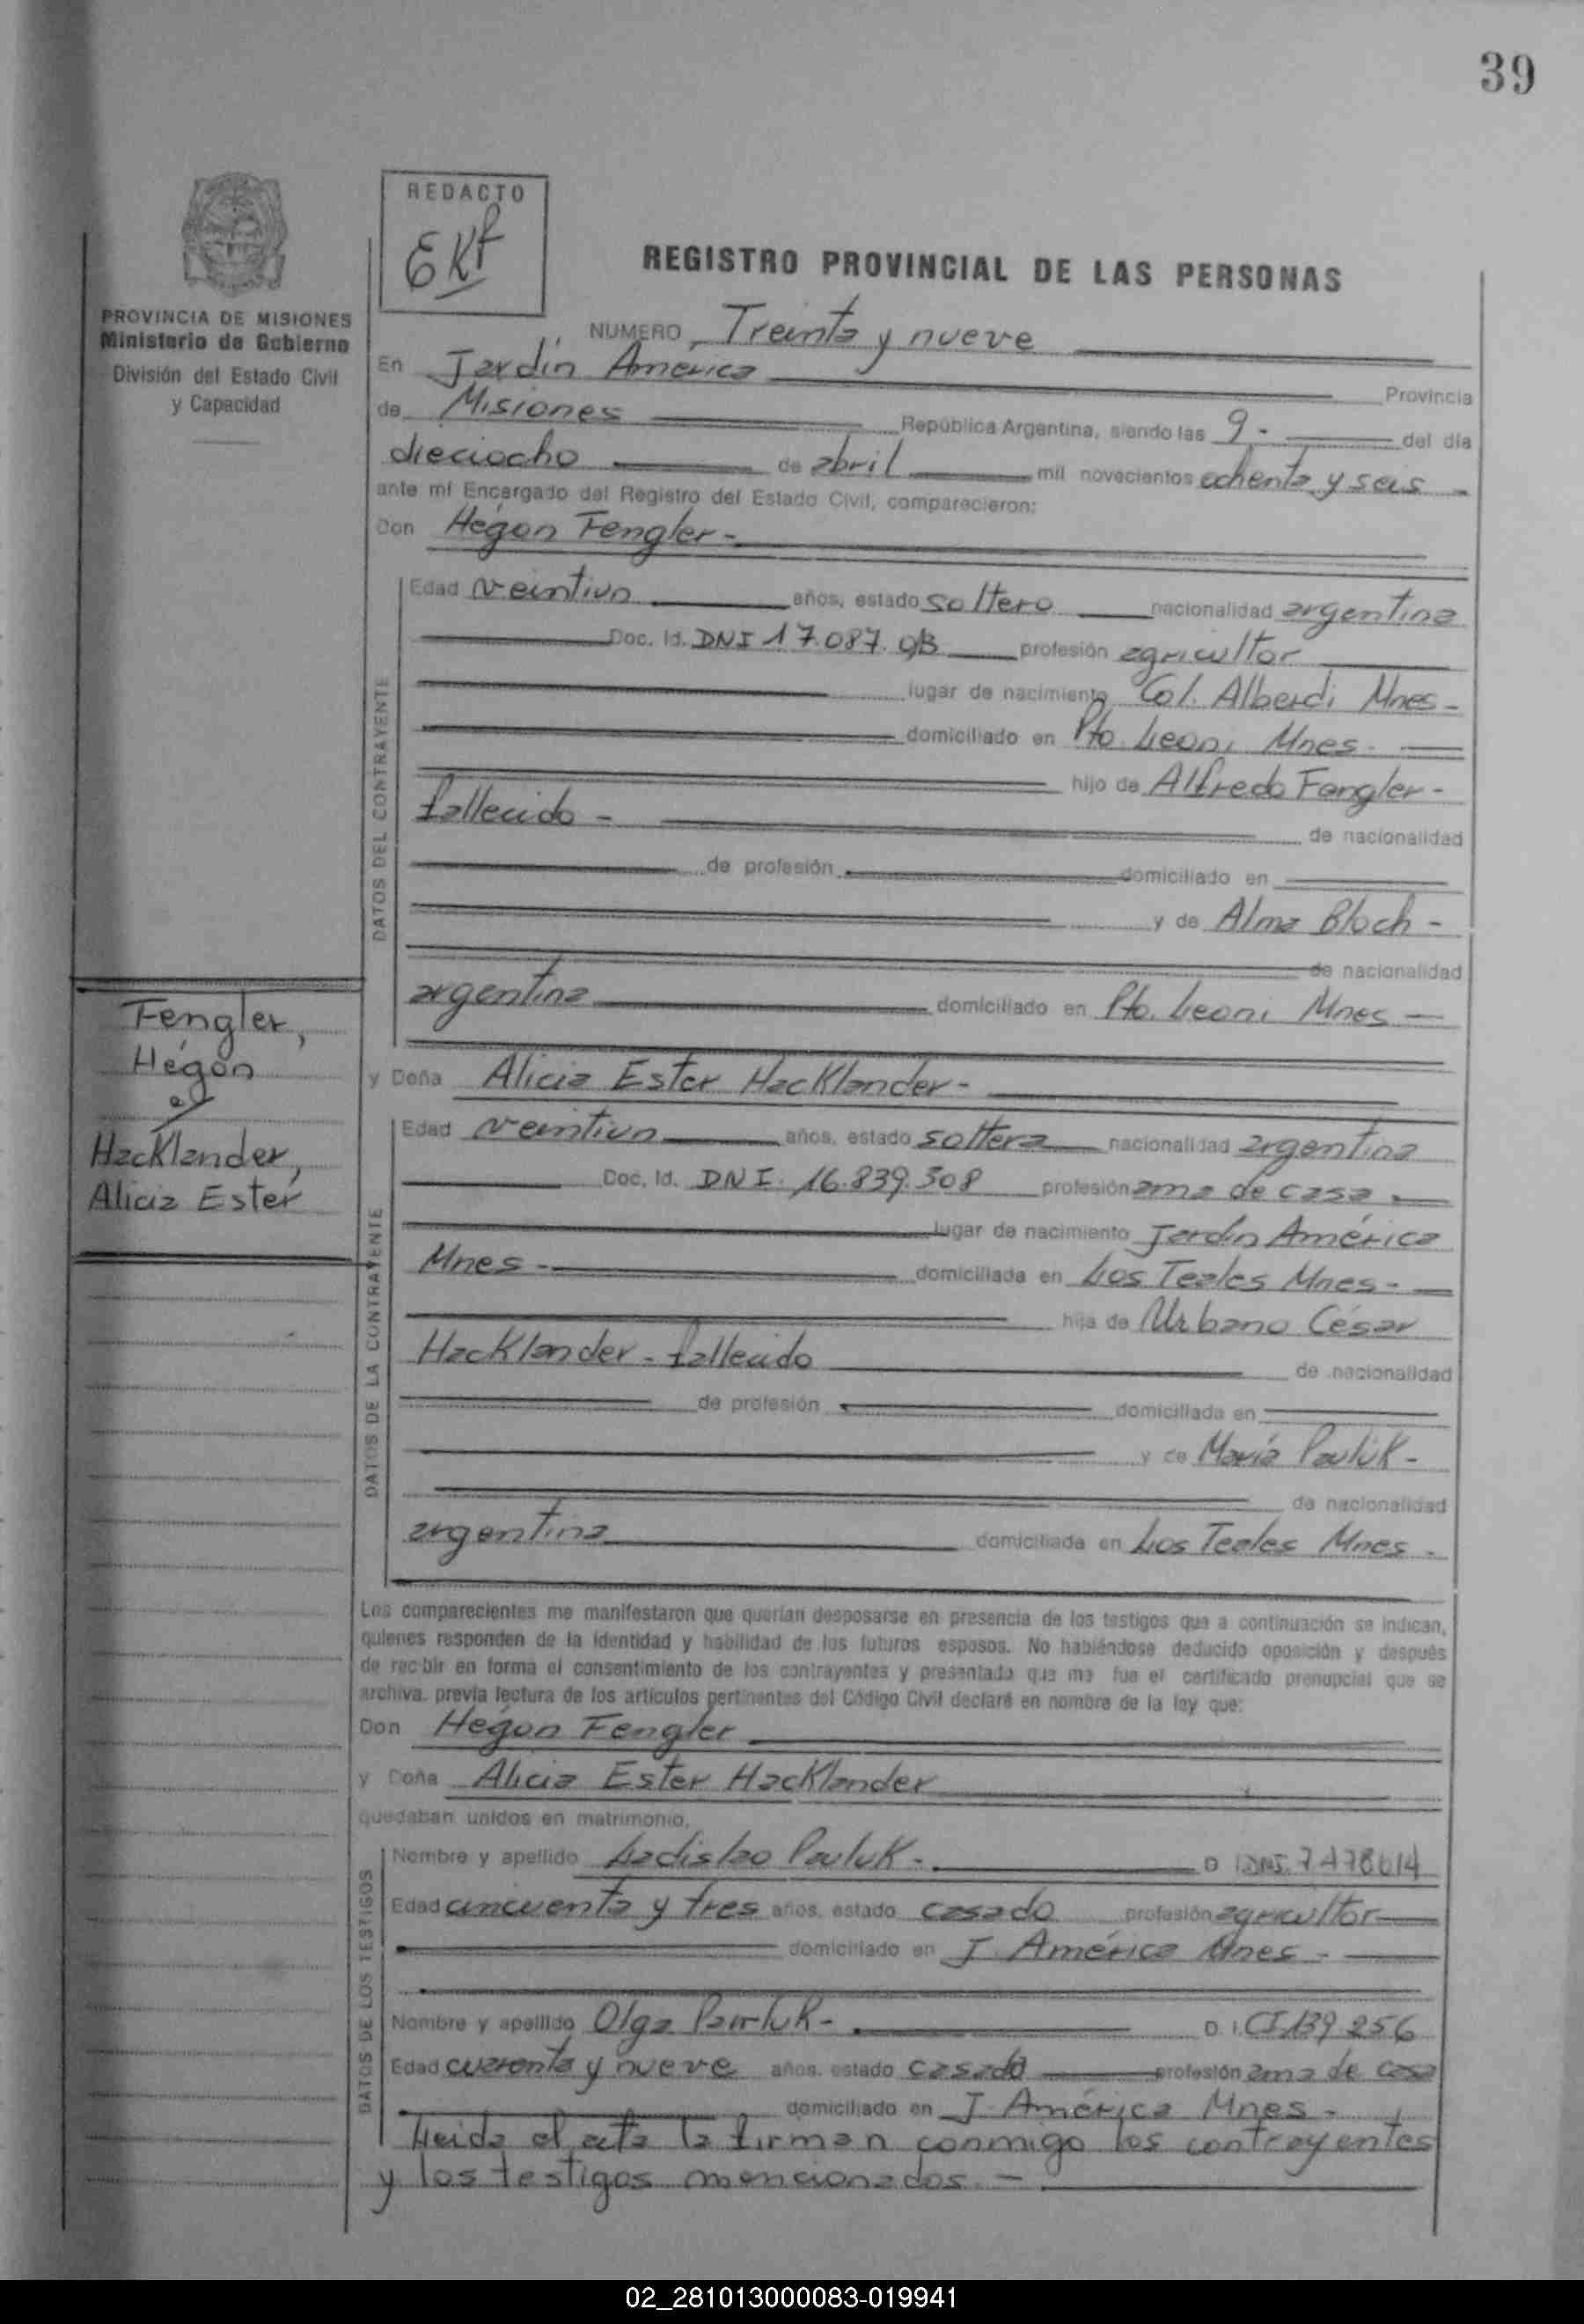 39
REDACTO
EKf
REGISTRO PROVINCIAL DE LAS PERSONAS
PROVINCIA DE MISIONES
Ministerio de Gobierno
División del Estado Civil
y Capacidad
NUMERO Treinta y nueve
En Jardín América Provincia
de Misiones República Argentina, siendo las 9.- del día
dieciocho de abril mil novecientos ochenta y seis -
ante mí Encargado del Registro del Estado Civil, comparecieron:
Don Hegon Fengler -
DATOS DEL CONTRAYENTE
Edad veintiun años, estado soltero nacionalidad argentina
Doc. Id. DNI 17.087. profesión agricultor
lugar de nacimiento Col. Alberdi Mnes -
domiciliado en Pto. Leoni Mnes.
hijo de Alfredo Fengler -
fallecido - de nacionalidad
de profesión domiciliado en
y de Alma Bloch -
de nacionalidad
argentina domiciliado en Pto. Leoni Mnes
Fengler,
Hegon
c/
Hacklander,
Alicia Ester
y Doña Alicia Ester Hacklander -
DATOS DE LA CONTRAYENTE
Edad veintiun años, estado soltera nacionalidad argentina
Doc. Id. DNI. 16.839.308 profesión ama de casa
lugar de nacimiento Jardín América
Mnes - domiciliada en Los Teales Mnes -
hija de Urbano César
Hacklander - fallecido de nacionalidad
de profesión domiciliada en
y de María Pauluk -
de nacionalidad
argentina domiciliada en Los Teales Mnes -
Los comparecientes me manifestaron que querían desposarse en presencia de los testigos que a continuación se indican,
quienes responden de la identidad y habilidad de los futuros esposos. No habiéndose deducido oposición y después
de recibir en forma el consentimiento de los contrayentes y presentado que me fue el certificado prenupcial que se
archiva, previa lectura de los artículos pertinentes del Código Civil declaré en nombre de la ley que:
Don Hegon Fengler
y Doña Alicia Ester Hacklander
quedaban unidos en matrimonio.
DATOS DE LOS TESTIGOS
Nombre y apellido Ladislao Pauluk - D I DNI. 7478614
Edad cincuenta y tres años, estado casado profesión agricultor
domiciliado en J. América Mnes -
Nombre y apellido Olga Pawluk - D. I. CI 139 256
Edad cuarenta y nueve años, estado casada profesión ama de casa
domiciliado en J. América Mnes -
Leida el acta la firman conmigo los contrayentes
y los testigos mencionados. -
02_281013000083-019941